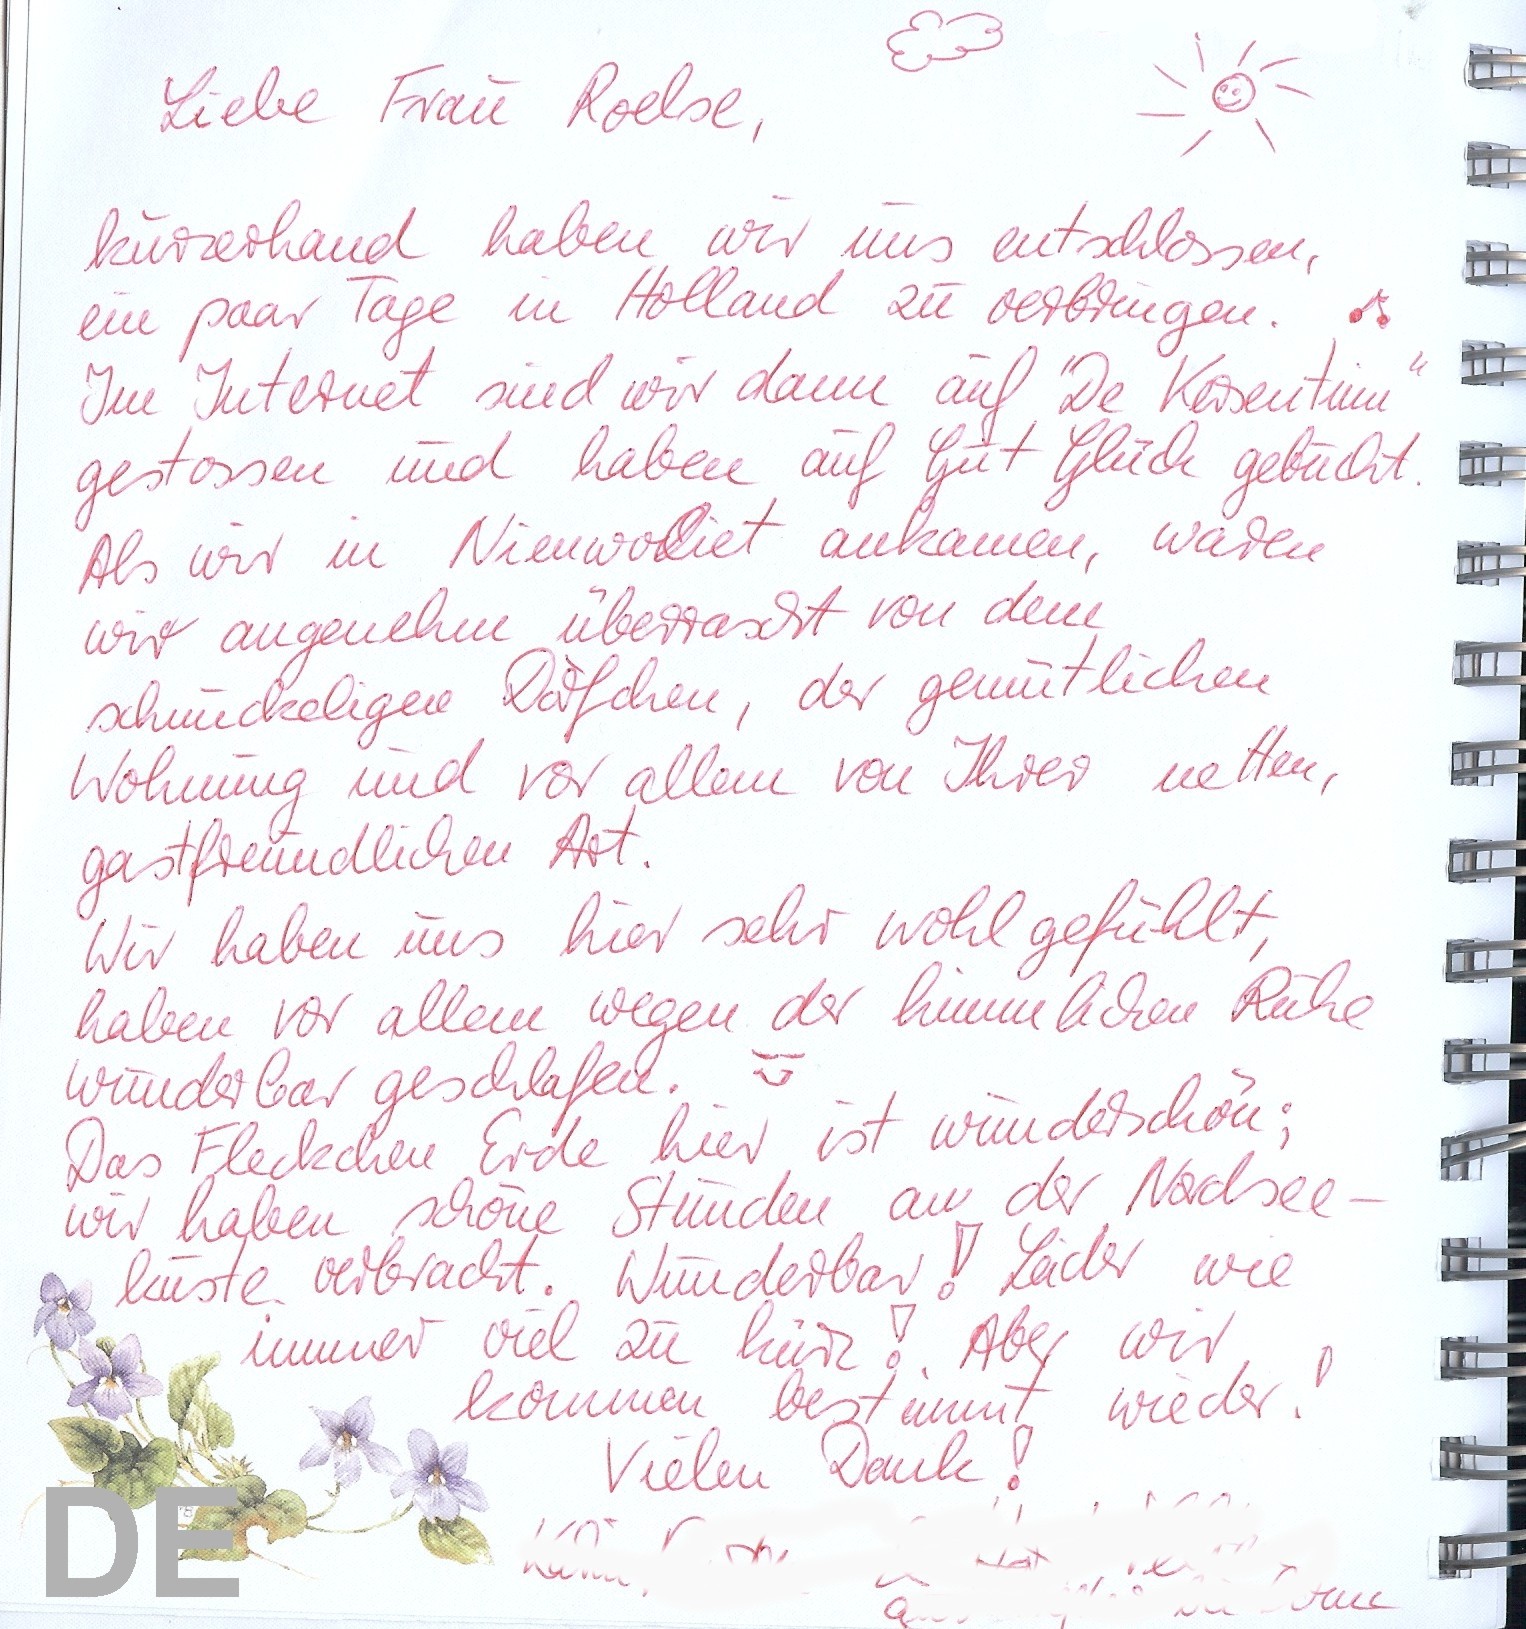 Liebe Frau Roelse,
kurzerhand haben wir uns entschlossen,
ein paar Tage in Holland zu verbringen.
Im Internet sind wir dann auf "De Kersentuin"
gestossen und haben auf Gut Glück gebucht.
Als wir in Nieuwvliet ankamen, waren
wir angenehm überrascht von dem
schnuckeligen Dörfchen, der gemütlichen
Wohnung und vor allem von Ihrer netten,
gastfreundlichen Art.
Wir haben uns hier sehr wohl gefühlt,
haben vor allem wegen der himmlichen Ruhe
wunderbar geschlafen.
Das Fleckchen Erde hier ist wunderschön;
wir haben schöne Stunden an der Nordsee-
küste verbracht. Wunderbar! Leider wie
immer viel zu kurz! Aber wir
kommen bestimmt wieder!
Vielen Dank!
DE